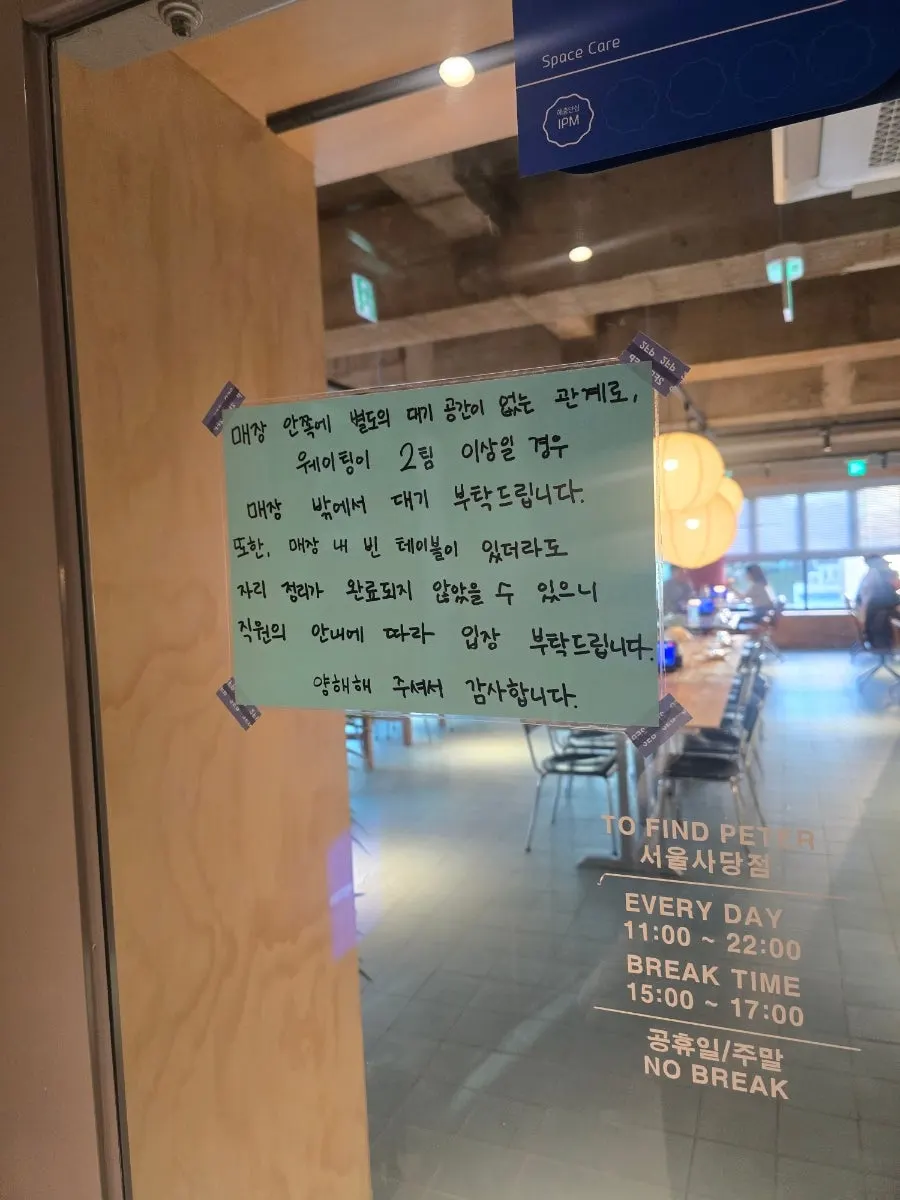 Space Care
해충안심
IPM
매장 안쪽에 별도의 대기 공간이 없는 관계로,
웨이팅이 2팀 이상일 경우
매장 밖에서 대기 부탁드립니다.
또한, 매장 내 빈 테이블이 있더라도
자리 정리가 완료되지 않았을 수 있으니
직원의 안내에 따라 입장 부탁드립니다.
양해해 주셔서 감사합니다.
TO FIND PETER
서울사당점
EVERY DAY
11:00 ~ 22:00
BREAK TIME
15:00 ~ 17:00
공휴일/주말
NO BREAK